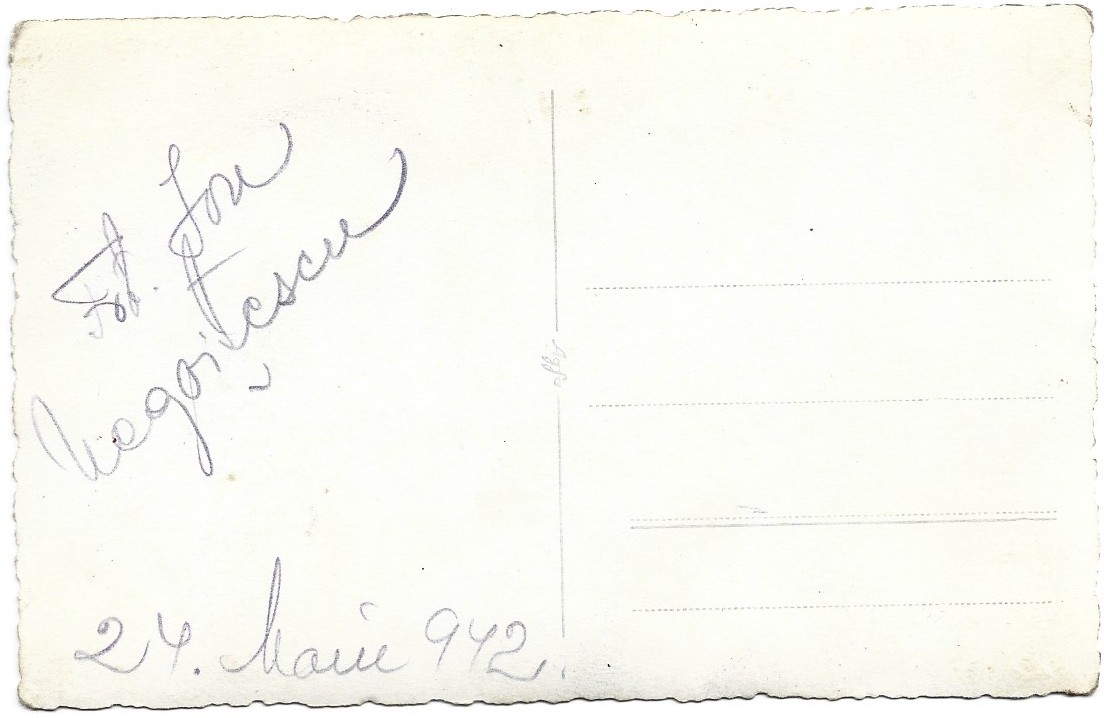 Fot. Ion
Negoițescu
24. Maiu 942.